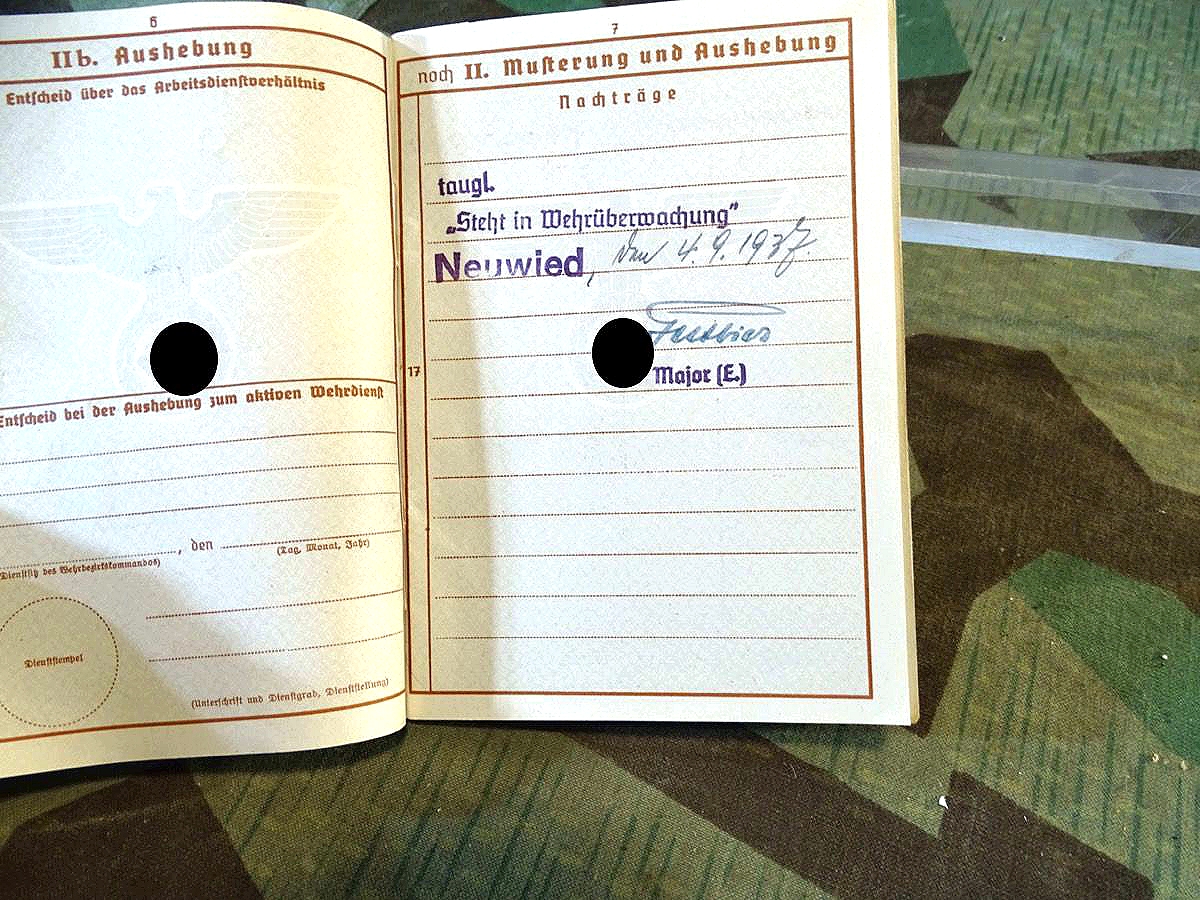 6
IIb. Aushebung
Entscheid über das Arbeitsdienstverhältnis
Entscheid bei der Aushebung zum aktiven Wehrdienst
, den
(Tag, Monat, Jahr)
(Dienstsitz des Wehrbezirkskommandos)
Dienststempel
(Unterschrift und Dienstgrad, Dienststellung)
7
noch II. Musterung und Aushebung
Nachträge
taugl.
„Steht in Wehrüberwachung"
Neuwied, den 4.9.1937.
17
Major (E.)